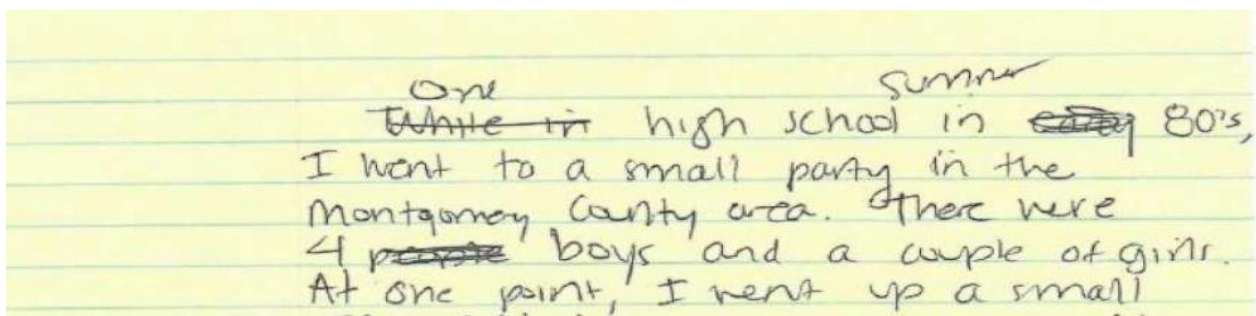 One summer
While in high school in early 80's,
I went to a small party in the
Montgomery County area. There were
4 people boys and a couple of girls.
At one point, I went up a small